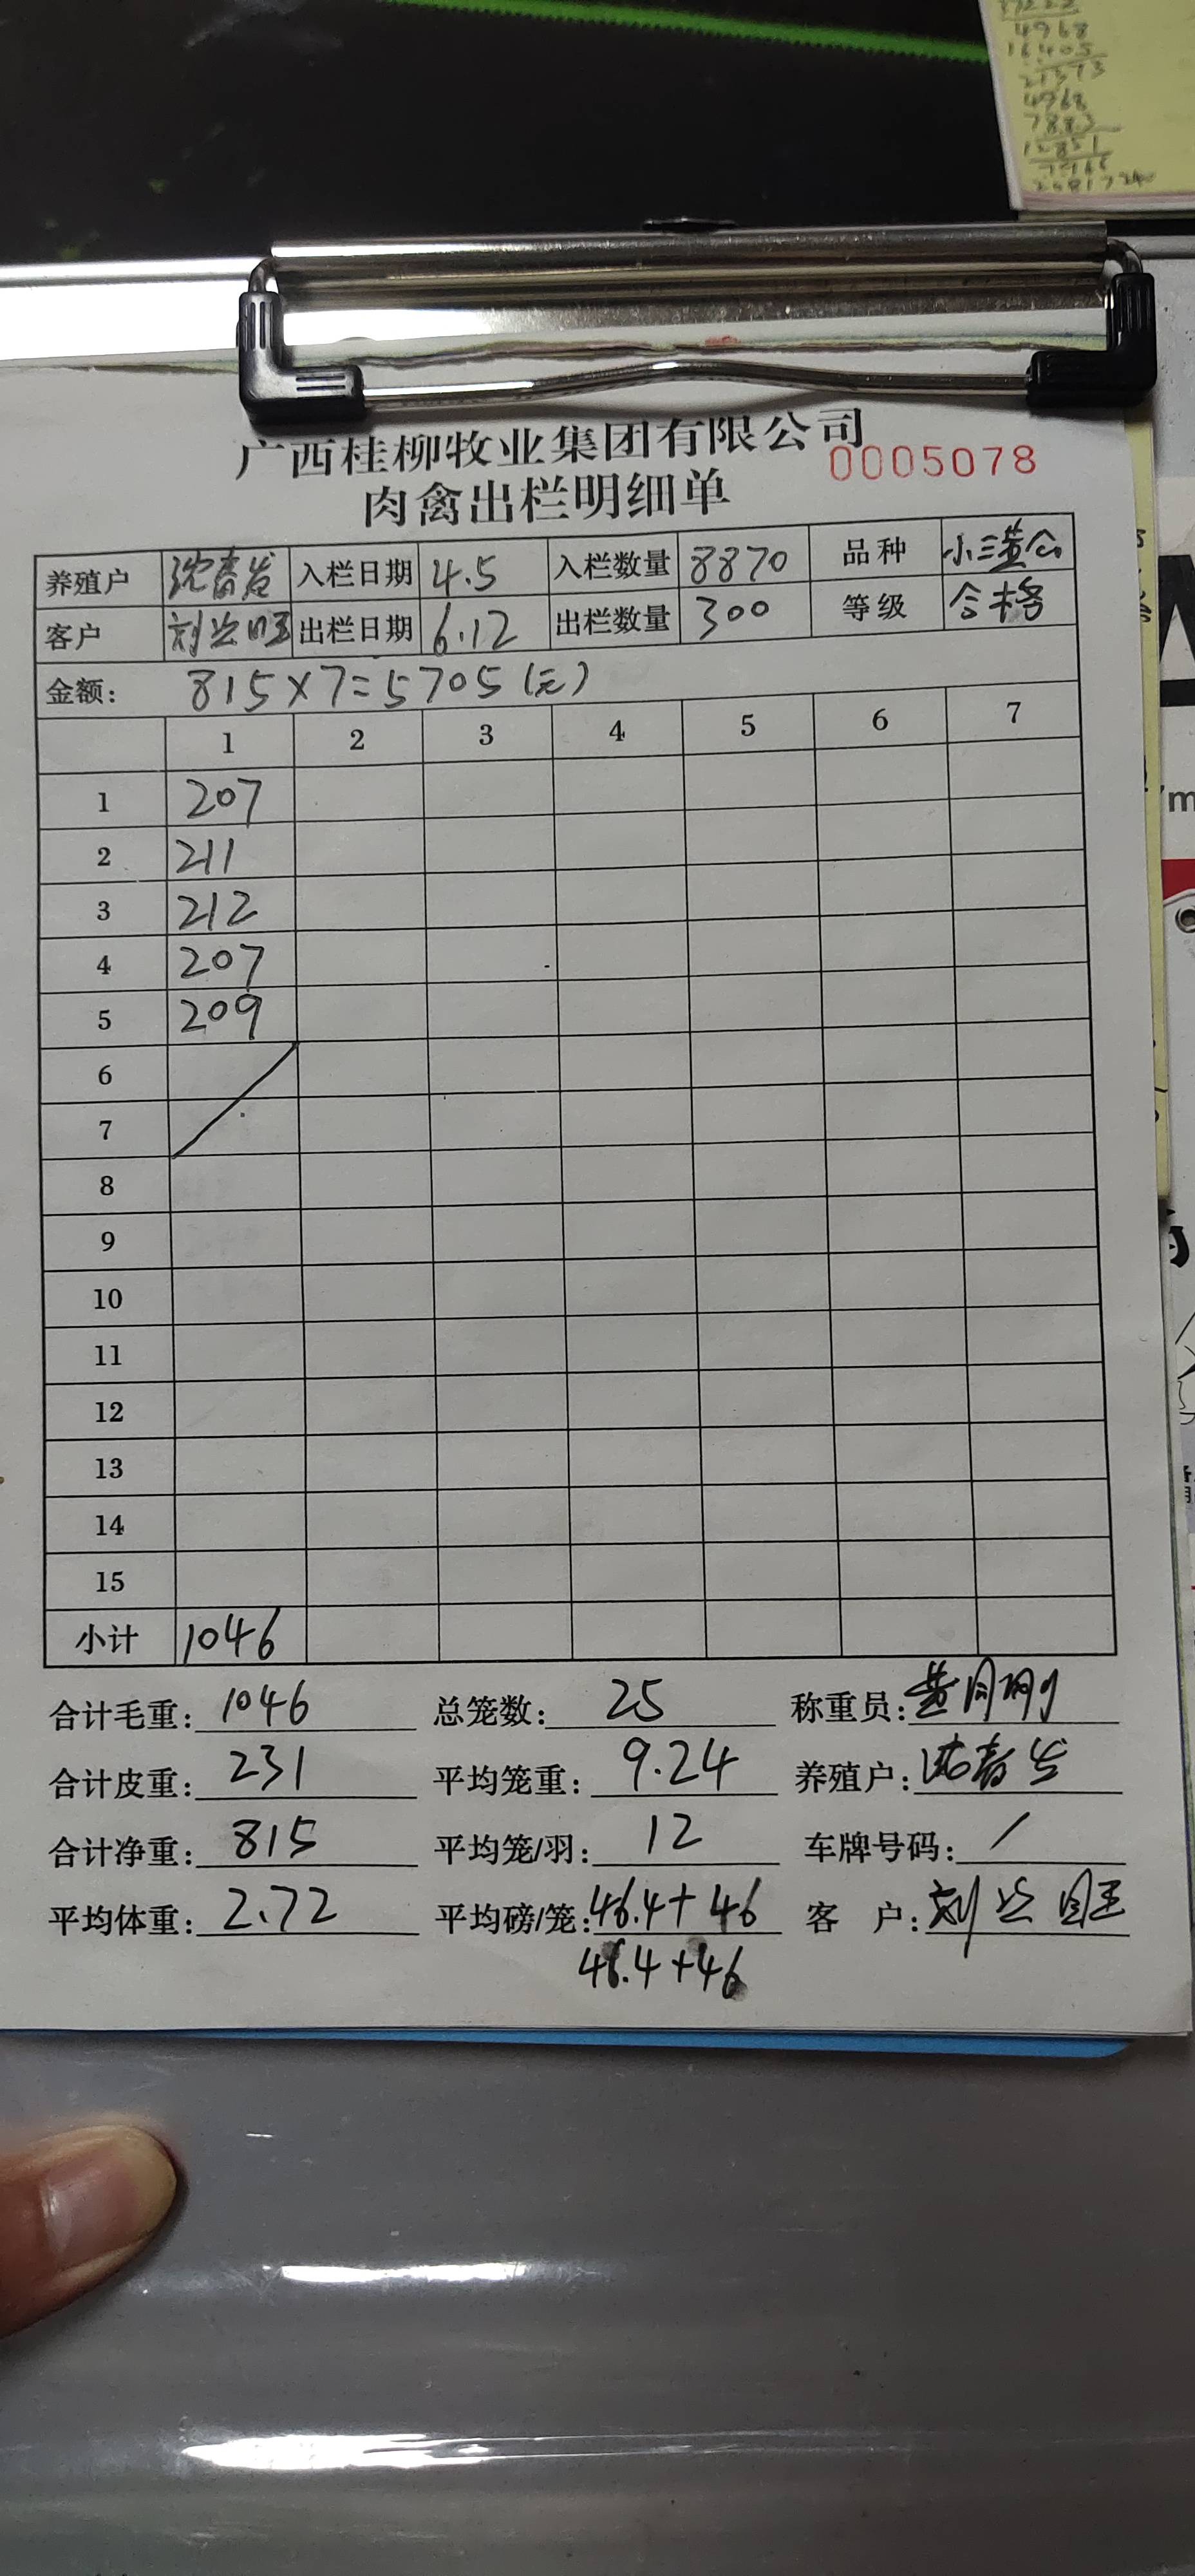 4968
16405
21373
4968
7883
12851
广西桂柳牧业集团有限公司
0005078
肉禽出栏明细单
养殖户 沈春发 入栏日期 4.5 入栏数量 8870 品种 小三黄公
客户 刘兴旺 出栏日期 6.12 出栏数量 300 等级 合格
金额: 815×7=5705(元)
1 2 3 4 5 6 7
1 207
2 211
3 212
4 207
5 209
6
7
8
9
10
11
12
13
14
15
小计 1046
合计毛重: 1046 总笼数: 25 称重员:
合计皮重: 231 平均笼重: 9.24 养殖户: 沈春发
合计净重: 815 平均笼/羽: 12 车牌号码: /
平均体重: 2.72 平均磅/笼: 46.4+46 客 户: 刘兴旺
46.4+46